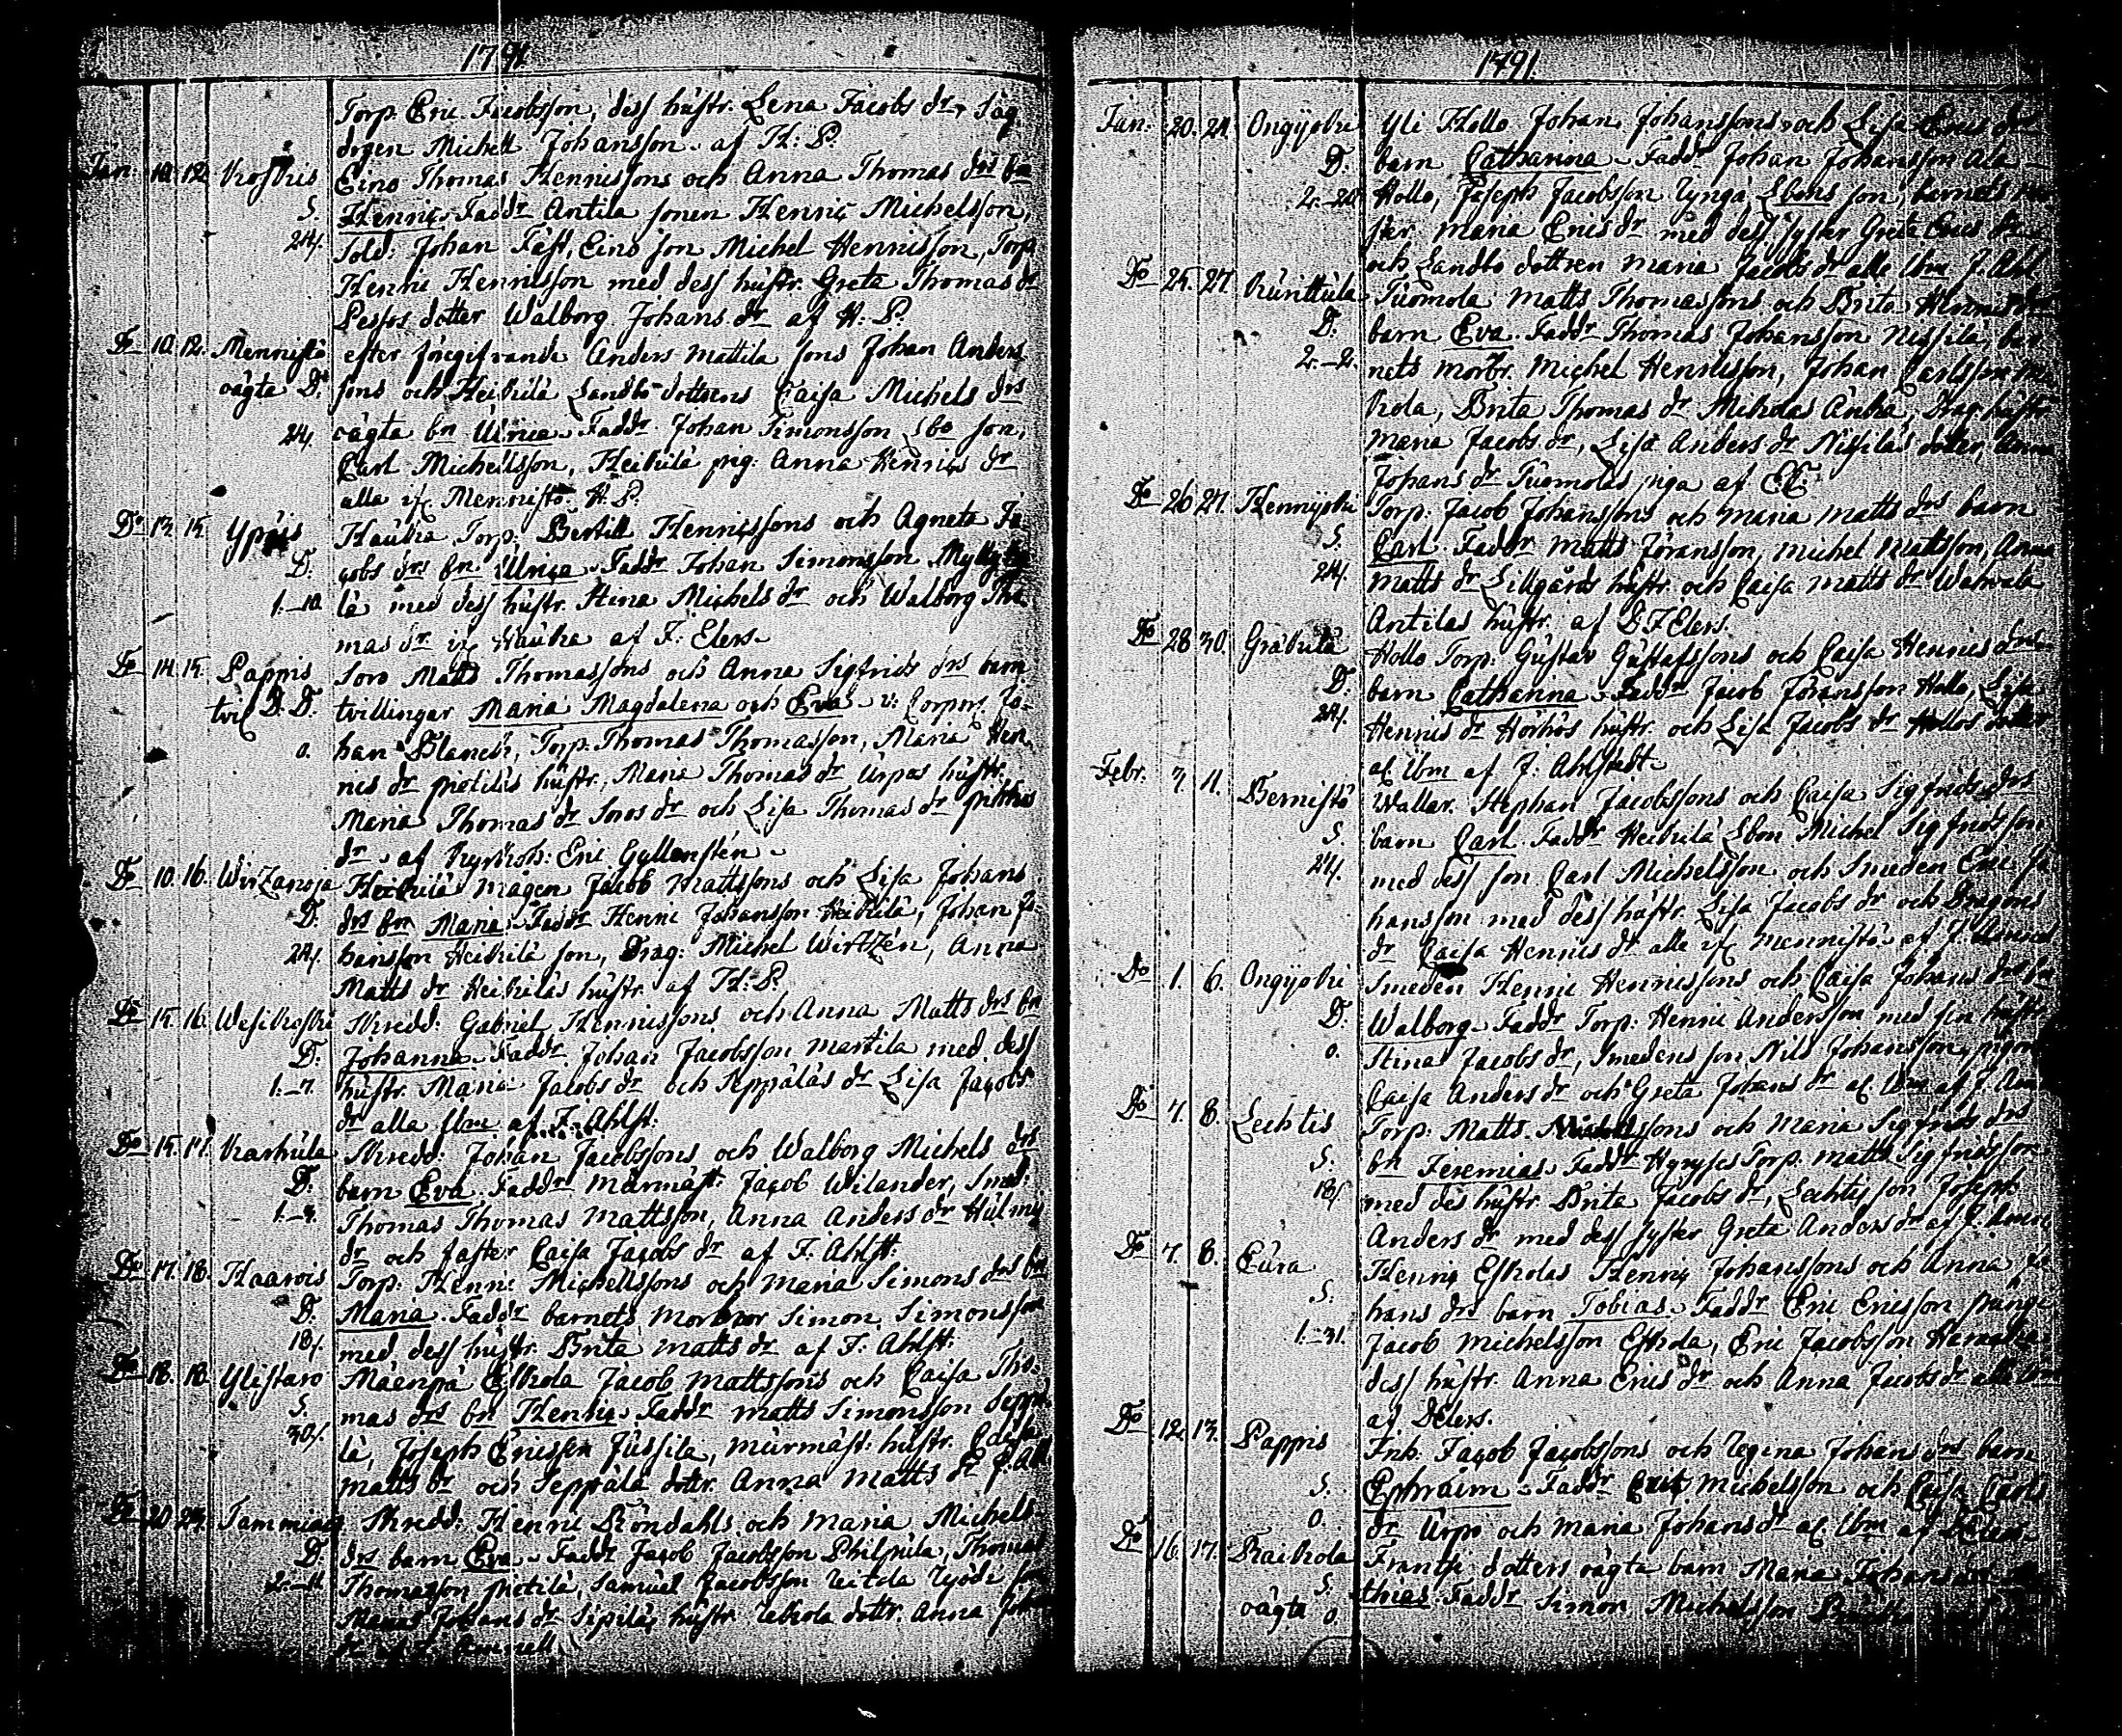 1791
Torp. Eric Jacobsson, dess hustr. Lena Jacobs dr, Såg
drgen Michell Johansson. af H: P.
Jan. 10. 12. Kroskis Eino Thomas Hennissons och Anna Thomas drs bn
S. Henric. Faddr Antila sonen Henric Michelsson,
24/. Sold: Johan Fast, Eino son Michel Hennisson, Torp.
Henric Hennisson med dess hustr. Greta Thomas dr
Pessos dotter Walborg Johans dr af H: P.
Do 10. 12. Mennistö efter föregifvande Anders Mattila sons Johan Anders
oägta D: sons och Heikilä Landbo dottrens Caisa Michels drs
24/. oägta bn Ulrica. Faddr Johan Simonsson Lbo son,
Carl Michellsson, Heikilä pig: Anna Henrics dr
alla if Mennistö. H: P.
Do 13. 15. Ypäis Hauka Torp: Bertill Henricssons och Agneta Ja-
D. cobs drs bn. Ulrica. Faddr Johan Simonsson Mylly
1.—10. lä med dess hustr. Stina Michels dr och Walborg Tho
mas dr if Hauka af F: Elers.
Do 14. 15. Pappis Soro Matts Thomassons och Anna Sigfrids drs barn
tvil D. D. tvillingar Maria Magdalena och Eva. v: Corpor. Jo-
0. han Blanck, Torp. Thomas Thomasson, Maria Hen
rics dr pietiläs hustr., Maria Thomas dr Urpos hustr.
Maria Thomas dr Soros dr och Lisa Thomas dr
dr. af Kyrkoh: Eric Gyllenstén.
Do 10. 16. Wirzanoja Heikilä mågen Jacob Mattssons och Lisa Johans
D. drs bn Maria. Faddr Henric Johansson Heikilä, Johan Jo-
24/. hansson Heikilä son, Drag: Michel Wirtzén, Anna
Matts dr Heikiläs hustr af H: P.
Do 15. 16. Wesikoski Skredd: Gabriel Hennissons och Anna Matts drs bn
D. Johanna. Faddr Johan Jacobsson Martila med dess
1.—7. hustr. Maria Jacobs dr och Seppäläs dr Lisa Jacobs
dr alla Ibm af F: Ahlst:
Do 15. 17. Karhula Skredd: Johan Jacobssons och Walborg Michels drs
D. barn Eva. Faddr Murmäst: Jacob Wilander, Smed:
1.—3. Thomas Thomas Mattsson, Anna Anders dr
dr och faster Caisa Jacobs dr af F: Ahlst:
Do 17. 18. Haarois Torp: Henric Michellssons och Maria Simons drs bn
D. Maria. Faddr barnets Morbror Simon Simonsson
18/. med dess hustr. Brita Matts dr af F: Ahlst:
Do 18. 18. Ylistaro Mäenpä Eskola Jacob Mattssons och Caisa Tho-
S. mas drs bn Henric. Faddr Matts Simonsson Seppä
30/. lä, Joseph Ericsson Jussila, murmäst: hustr.
Matts dr och Seppälä dottr. Anna Matts dr
Do 20. 23. Tammiais Skredd: Henric Röndahls och Maria Michels
D. drs barn Eva. Faddr Jacob Jacobsson Philpula, Thomas
2.—11. Thomasson pietilä, Samuel Jacobsson
Johans dr Sipiläs hustr dottr. Anna
1791
Jan. 20. 24. Ongijoki Yli Hollo Johan Johanssons och Lisa Erics drs
D. barn Catharina. Faddr Johan Johansson Ala-
2.—20. Hollo, Joseph Jacobsson Lbons son, barnets
Maria Erics dr med dess syster Greta Erics dr
och Landbo dottren Maria Jacobs dr alla Ibm J. Ahl
Do 25. 27. Runttula Tuomola Matts Thomassons och Brita Henrics drs
D. barn Eva. Faddr Thomas Johansson Nissilä, bar
2.—2. nets morbr. Michel Henricsson, Johan Carlsson
kola, Brita Thomas dr Mikolas Änka, Drag. hustr
Maria Jacobs dr, Lisa Anders dr Nissiläs dotter, Anna
Johans dr Tuomolas piga af
Do 26 27. Hennijoki Torp: Jacob Johanssons och Maria Matts drs barn
S. Carl. Faddr Matts Jöransson, Michel Mattsson, Anna
24/. Matts dr Lillgårds hustr. och Caisa Matts dr
Antilas hustr. af D F Elers.
Do 28 30. Gräkilä Hollo Torp: Gustav Gustafssons och Caisa Henrics drs
D. barn Catharina. Faddr Jacob Jöransson Hollo, Lisa
24/. Henrics dr Hörhös hustr. och Lisa Jacobs dr Hollos dotter
al. Ibm af J: Ahlstedt.
Febr. 7. 11. Stephan Jacobssons och Caisa Sigfrids drs
S. barn Carl. Faddr Heikilä Lbon Michel Sigfridsson
24/. med dess son Carl Michelsson och Smeden Eric Jo
hansson med dess hustr. Lisa Jacobs dr och Dragons
dr Caisa Henrics dr alle if Mennistö. af
Do 1. 6. Ongijoki Smeden Henric Henricssons och Caisa Johans drs bn
D. Walborg. Faddr Torp: Henric Andersson med sin hustr
0. Stina Jacobs dr, Smedens son Nils Johansson,
Caisa Anders dr och Greta Johans dr al. Ibm af J.
Do 7. 8. Lechtis Torp: Matts sons och Maria Sigfrids drs
S. bn Jeremias. Faddr Torp: Matts Sigfridsson
18/. med des hustr. Brita Jacobs dr, Lechtis son Joseph
Anders dr med dess syster Greta Anders dr af
Do 7. 8. Eura Henric Eskolas Henric Johanssons och Anna Jo
S. hans drs barn Tobias. Faddr Eric Ericsson
1.—31. Jacob Michelsson Eskola, Eric Jacobsson
dess hustr. Anna Erics dr och Anna Jacobs dr alla Ibm
af DElers.
Do 12. 13. Pappis Inh. Jacob Jacobssons och Regina Johans drs barn
S. Ephraim. Faddr Michelsson och Caisa Carls
0. dr Urpo och Maria Johans dr al. Ibm af DElers.
Do 16. 17. Raikola Frantsi dotters oägta barn Maria Johans drs
S. oägta 0. thias. Faddr Simon Michelsson